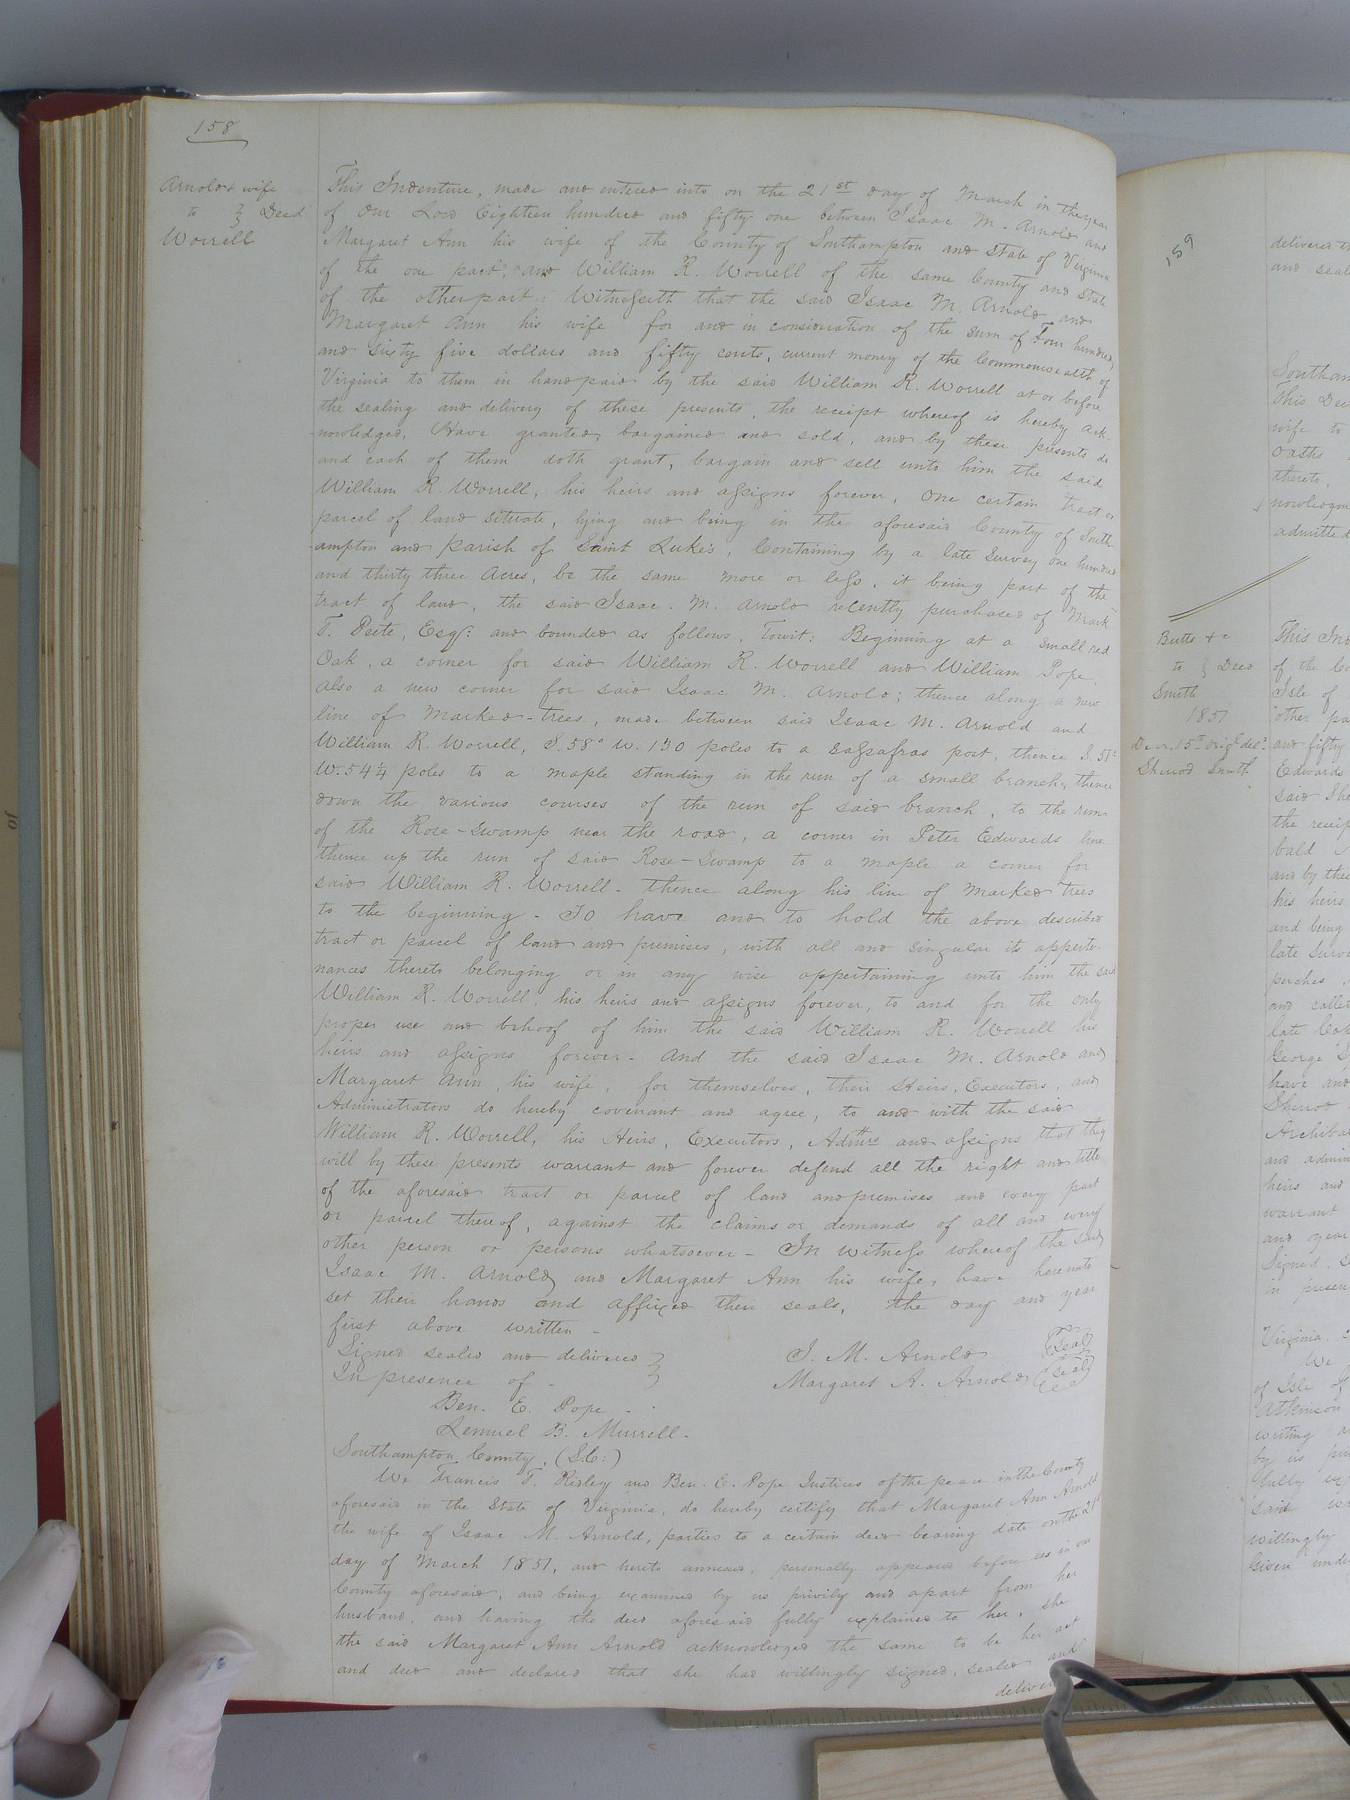 158
Arnold & wife
to } Deed
Worrell
This Indenture, made and entered into on the 21st day of March in the year
of Our Lord Eighteen hundred and fifty one between Isaac M. Arnold and
Margaret Ann his wife of the County of Southampton and State of Virginia
of the one part, and William R. Worrell of the same County and State
of the other part: Witnesseth that the said Isaac M. Arnold and
Margaret Ann his wife for and in consideration of the sum of Four hundred
and sixty five dollars and fifty cents, current money of the Commonwealth of
Virginia to them in hand paid by the said William R. Worrell at or before
the sealing and delivery of these presents, the receipt whereof is hereby ack-
nowledged, Have granted, bargained and sold, and by these presents do
and each of them doth grant, bargain and sell unto him the said
William R. Worrell, his heirs and assigns forever, One certain tract or
parcel of land situate, lying and being in the aforesaid County of South-
ampton and parish of Saint Luke's, Containing by a late survey one hundred
and thirty three Acres, be the same more or less, it being part of the
tract of land, the said Isaac. M. Arnold recently purchased of Mark
T. Peete, Esqr: and bounded as follows, Towit: Beginning at a small red
Oak, a corner for said William R. Worrell and William Pope,
also a new corner for said Isaac M. Arnold; thence along a new
line of marked-trees, made between said Isaac M. Arnold and
William R. Worrell, S. 58° W. 130 poles to a sassafras post, thence S. 51°
W. 54¼ poles to a maple standing in the run of a small branch, thence
down the various courses of the run of said branch, to the run
of the Rose-Swamp near the road, a corner in Peter Edwards line
thence up the run of said Rose-Swamp to a maple a corner for
said William R. Worrell - thence along his line of marked trees
to the beginning - To have and to hold the above described
tract or parcel of land and premises, with all and singular its apperte-
nances thereto belonging or in any wise appertaining unto him the said
William R. Worrell, his heirs and assigns forever, to and for the only
proper use and behoof of him the said William R. Worrell his
heirs and assigns forever - And the said Isaac M. Arnold and
Margaret Ann, his wife, for themselves, their Heirs, Executors, and
Administrators do hereby covenant and agree, to and with the said
William R. Worrell, his Heirs, Executors, Admtrs and assigns that they
will by these presents warrant and forever defend all the right and title
of the aforesaid tract or parcel of land and premises and every part
or parcel thereof, against the claims or demands of all and every
other person or persons whatsoever - In witness whereof the said
Isaac M. Arnold, and Margaret Ann his wife, have hereunto
set their hands and affixed their seals, the day and year
first above written -
Signed sealed and delivered } I. M. Arnold (Seal)
In presence of - } Margaret A. Arnold (Seal)
Ben. E. Pope -
Lemuel B. Murrell -
Southampton County, (S.C:)
We Francis T. Ridley and Ben. E. Pope Justices of the peace in the County
aforesaid in the State of Virginia, do hereby certify that Margaret Ann Arnold
the wife of Isaac M. Arnold, parties to a certain deed bearing date on the 21st
day of March 1851, and hereto annexed, personally appeared before us in our
County aforesaid, and being examined by us privily and apart from her
husband, and having the deed aforesaid fully explained to her, she
the said Margaret Ann Arnold acknowledged the same to be her act
and deed and declared that she had willingly signed, sealed and
159
delivered th
and seal
Southam
This Dee
wife to
oaths
thereto,
nowledgm
admitted
Butts &c
to } Deed
Smith
1851
Decr. 15th
Sherod Smith
This Ind
of the Co
Isle of
other pa
and fifty
Edwards
said She
the receip
bald
and by thes
his heirs
and being
late surve
perches
and called
late Cap
George
have and
Sherod
Archiba
and admin
heirs and
warrant
and year
Signed, S
in presen
Virginia,
We
of Isle of
Atkinson
writing
by us
fully
said
willingly
Given unde